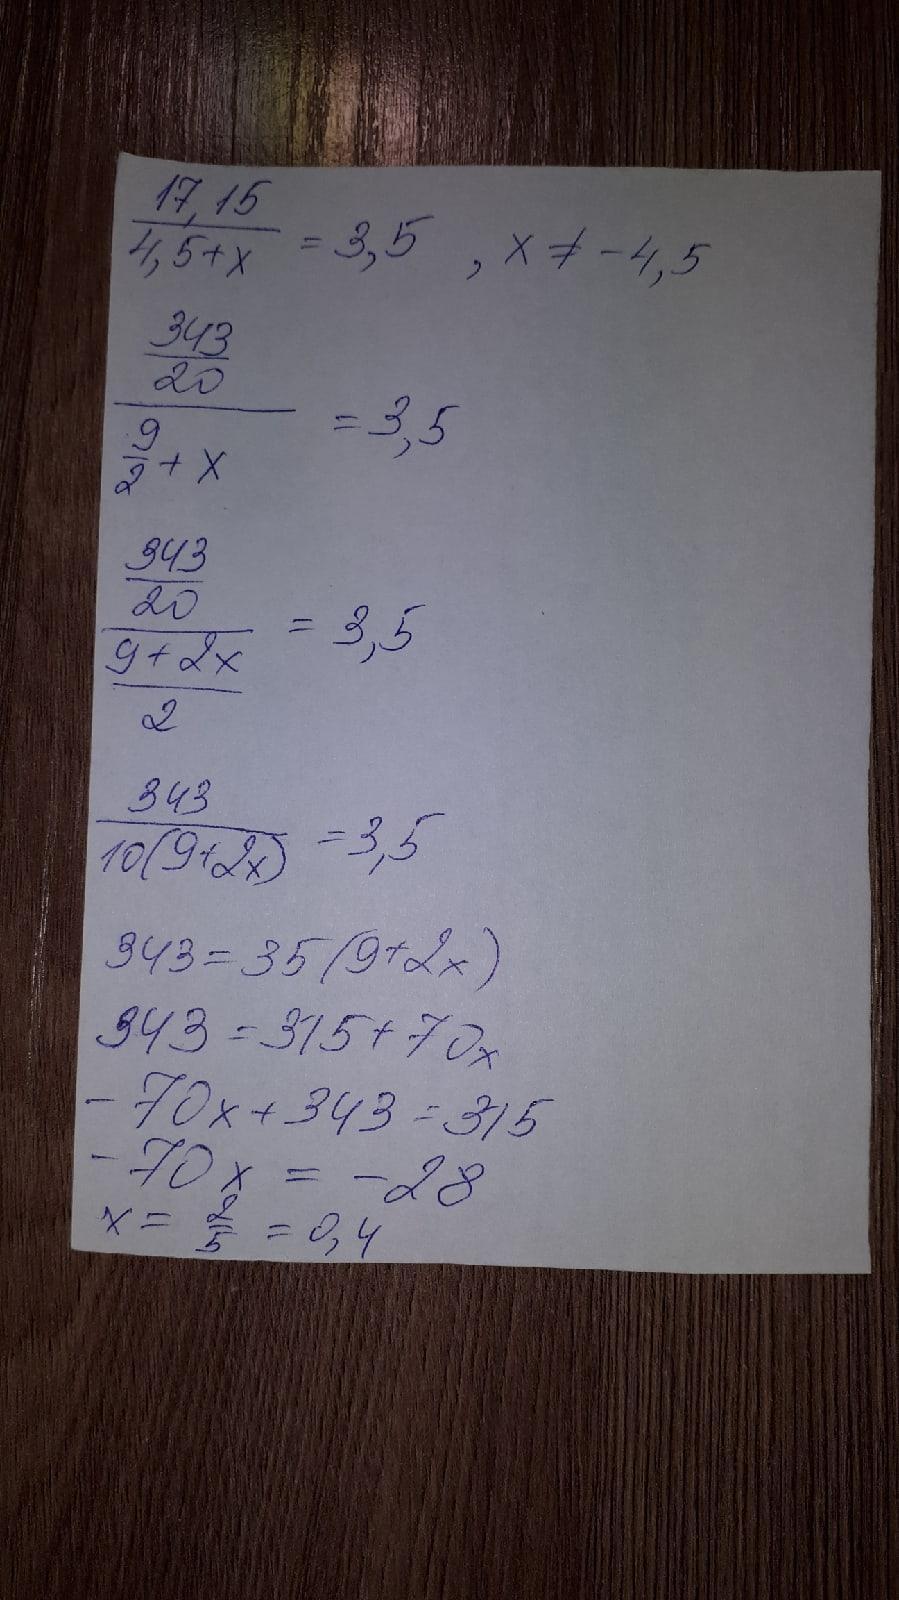 17,15/(4,5+x) = 3,5 , x ≠ -4,5
(343/20)/(9/2 + x) = 3,5
(343/20)/((9+2x)/2) = 3,5
343/(10(9+2x)) = 3,5
343 = 35(9+2x)
343 = 315 + 70x
-70x + 343 = 315
-70x = -28
x = 2/5 = 0,4